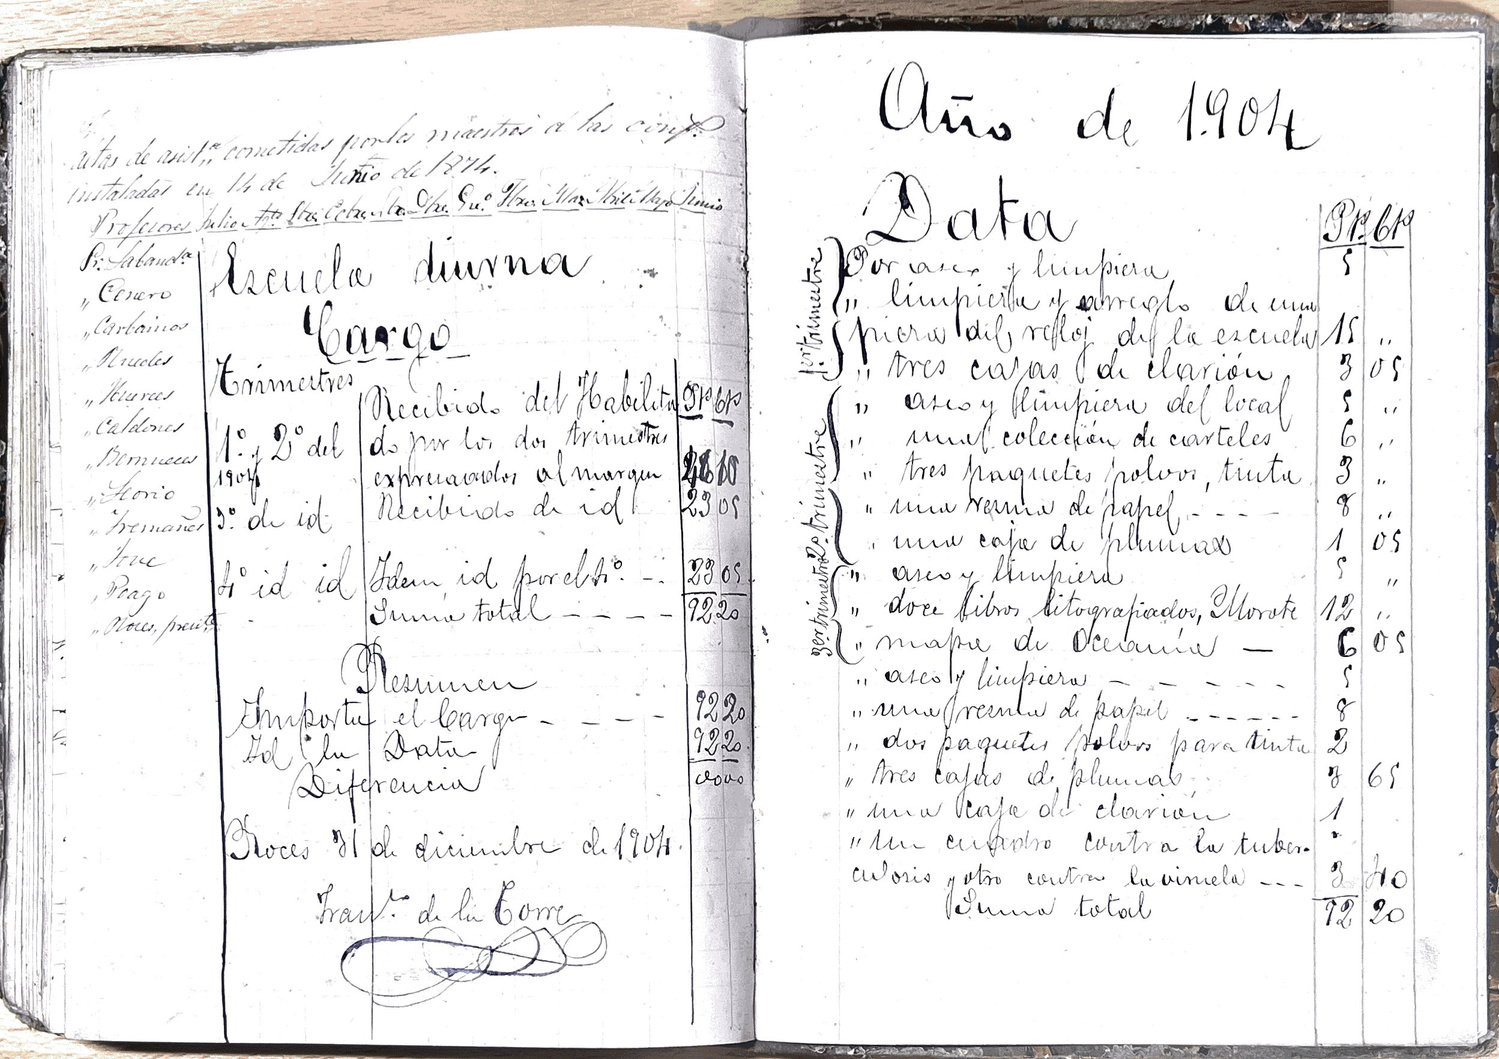 altas de asist.ª cometidas por los maestros a las conf.ª
instaladas en 14 de Junio de 1874.
Profesores Julio Ag.to Sbre Octu Nbre Dbre En.º Fbro Mar Abril Mayo Junio
Pr. Laband.ª
„ Cenero
„ Carbainos
„ Ruedes
„ Huerces
„ Caldones
„ Bernueces
„ Porio
„ Tremañes
„ Jove
„ Peago
„ Roces, pres.te
Escuela diurna
Cargo
Trimestres
Recibido del Habilita Pts Cts
1.º y 2.º del do por los dos trimestres
1904 expresados al margen 46 10
3.º de id Recibido de id 23 05
4.º id id Idem id por el 4.º -. 23 05
Suma total - - - - 92 20
Resumen
Importa el Cargo - - - - 92 20
Id la Data 92 20
Diferencia 00 00
Roces 31 de diciembre de 1904.
Fran.co de la Torre
Año de 1904
Data Pts Cts
1er trimestre
Por aseo y limpieza 5
„ limpieza y arreglo de una
pieza del reloj de la escuela 15 „
„ tres cajas de clarión 3 05
2º trimestre
„ aseo y limpieza del local 5 „
„ una colección de carteles 6 „
„ tres paquetes polvos, tinta 3 „
„ una resma de papel - - - - 8 „
„ una caja de plumas 1 05
3er trimestre
„ aseo y limpieza 5 „
„ doce libros litografiados, Morote 12 „
„ mapa de Oceanía — 6 05
„ aseo y limpieza - - - - - 5
„ una resma de papel - - - - - - 8
„ dos paquetes polvos para tinta 2
„ tres cajas de plumas 3 65
„ una caja de clarión 1
„ un cuadro contra la tuber-
culosis y otro contra la viruela - - - 3 40
Suma total 92 20